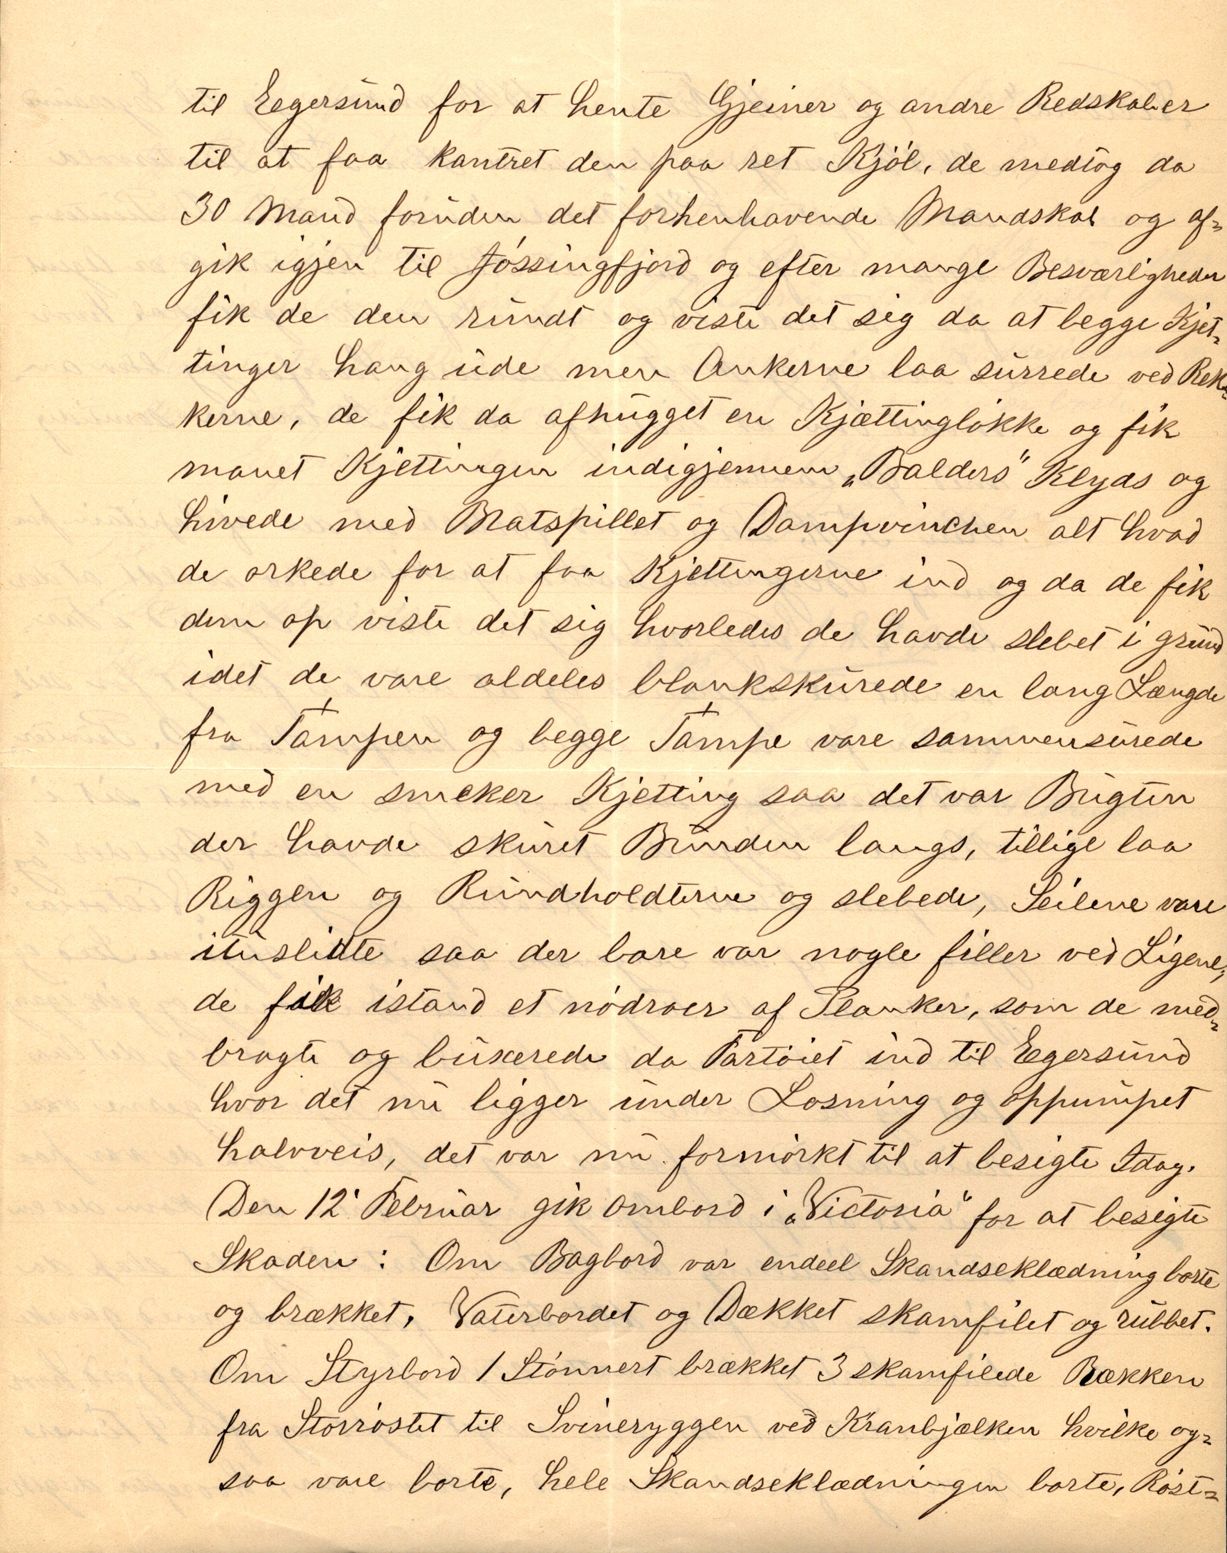 til Eegersund for at hente Gjeiner og andre Redskaber
til at faa kantret den paa ret Kjöl, de medtog da
30 Mand foruden det forhenhavende Mandskab og af-
gik igjen til Jössingfjord og efter mange Besværligheder
fik de den rundt og viste det sig da at begge Kjet-
tinger hang ude men Ankerne laa surrede ved Rek-
kerne, de fik da afhugget en Kjættinglökke og fik
manet Kjettingen indigjennem „Balders" Klyds og
hivede med Bratspillet og Dampvinchen alt hvad
de orkede for at faa Kjettingerne ind og da de fik
dem op viste det sig hvorledes de havde slebet i grund
idet de vare aldeles blankskurede en lang Længde
fra Tampen og begge Tampe vare sammensurede
med en smeker Kjetting saa det var Bugten
der havde skuret Bunden langs, tillige laa
Riggen og Rundholdterne og slebede, Seilene vare
ituslidte saa der bare var nogle filler ved Ligene,
de fik istand et nödroer af Planker, som de med-
bragte og buxerede da Fartöiet ind til Egersund
hvor det nu ligger under Losning og oppumpet
halvveis, det var nu formörkt til at besigte Idag.
Den 12' Februar gik ombord i „Victoria" for at besigte
Skaden : Om Bagbord var endeel Skandseklædning borte
og brækket, Vaterbordet og Dækket skamfilet og rubbet.
Om Styrbord 1 Stönnert brækket 3 skamfilede Rækken
fra Storröstet til Svineryggen ved Kranbjælken hvilke og-
saa vare borte, hele Skandseklædningen borte, Röst-